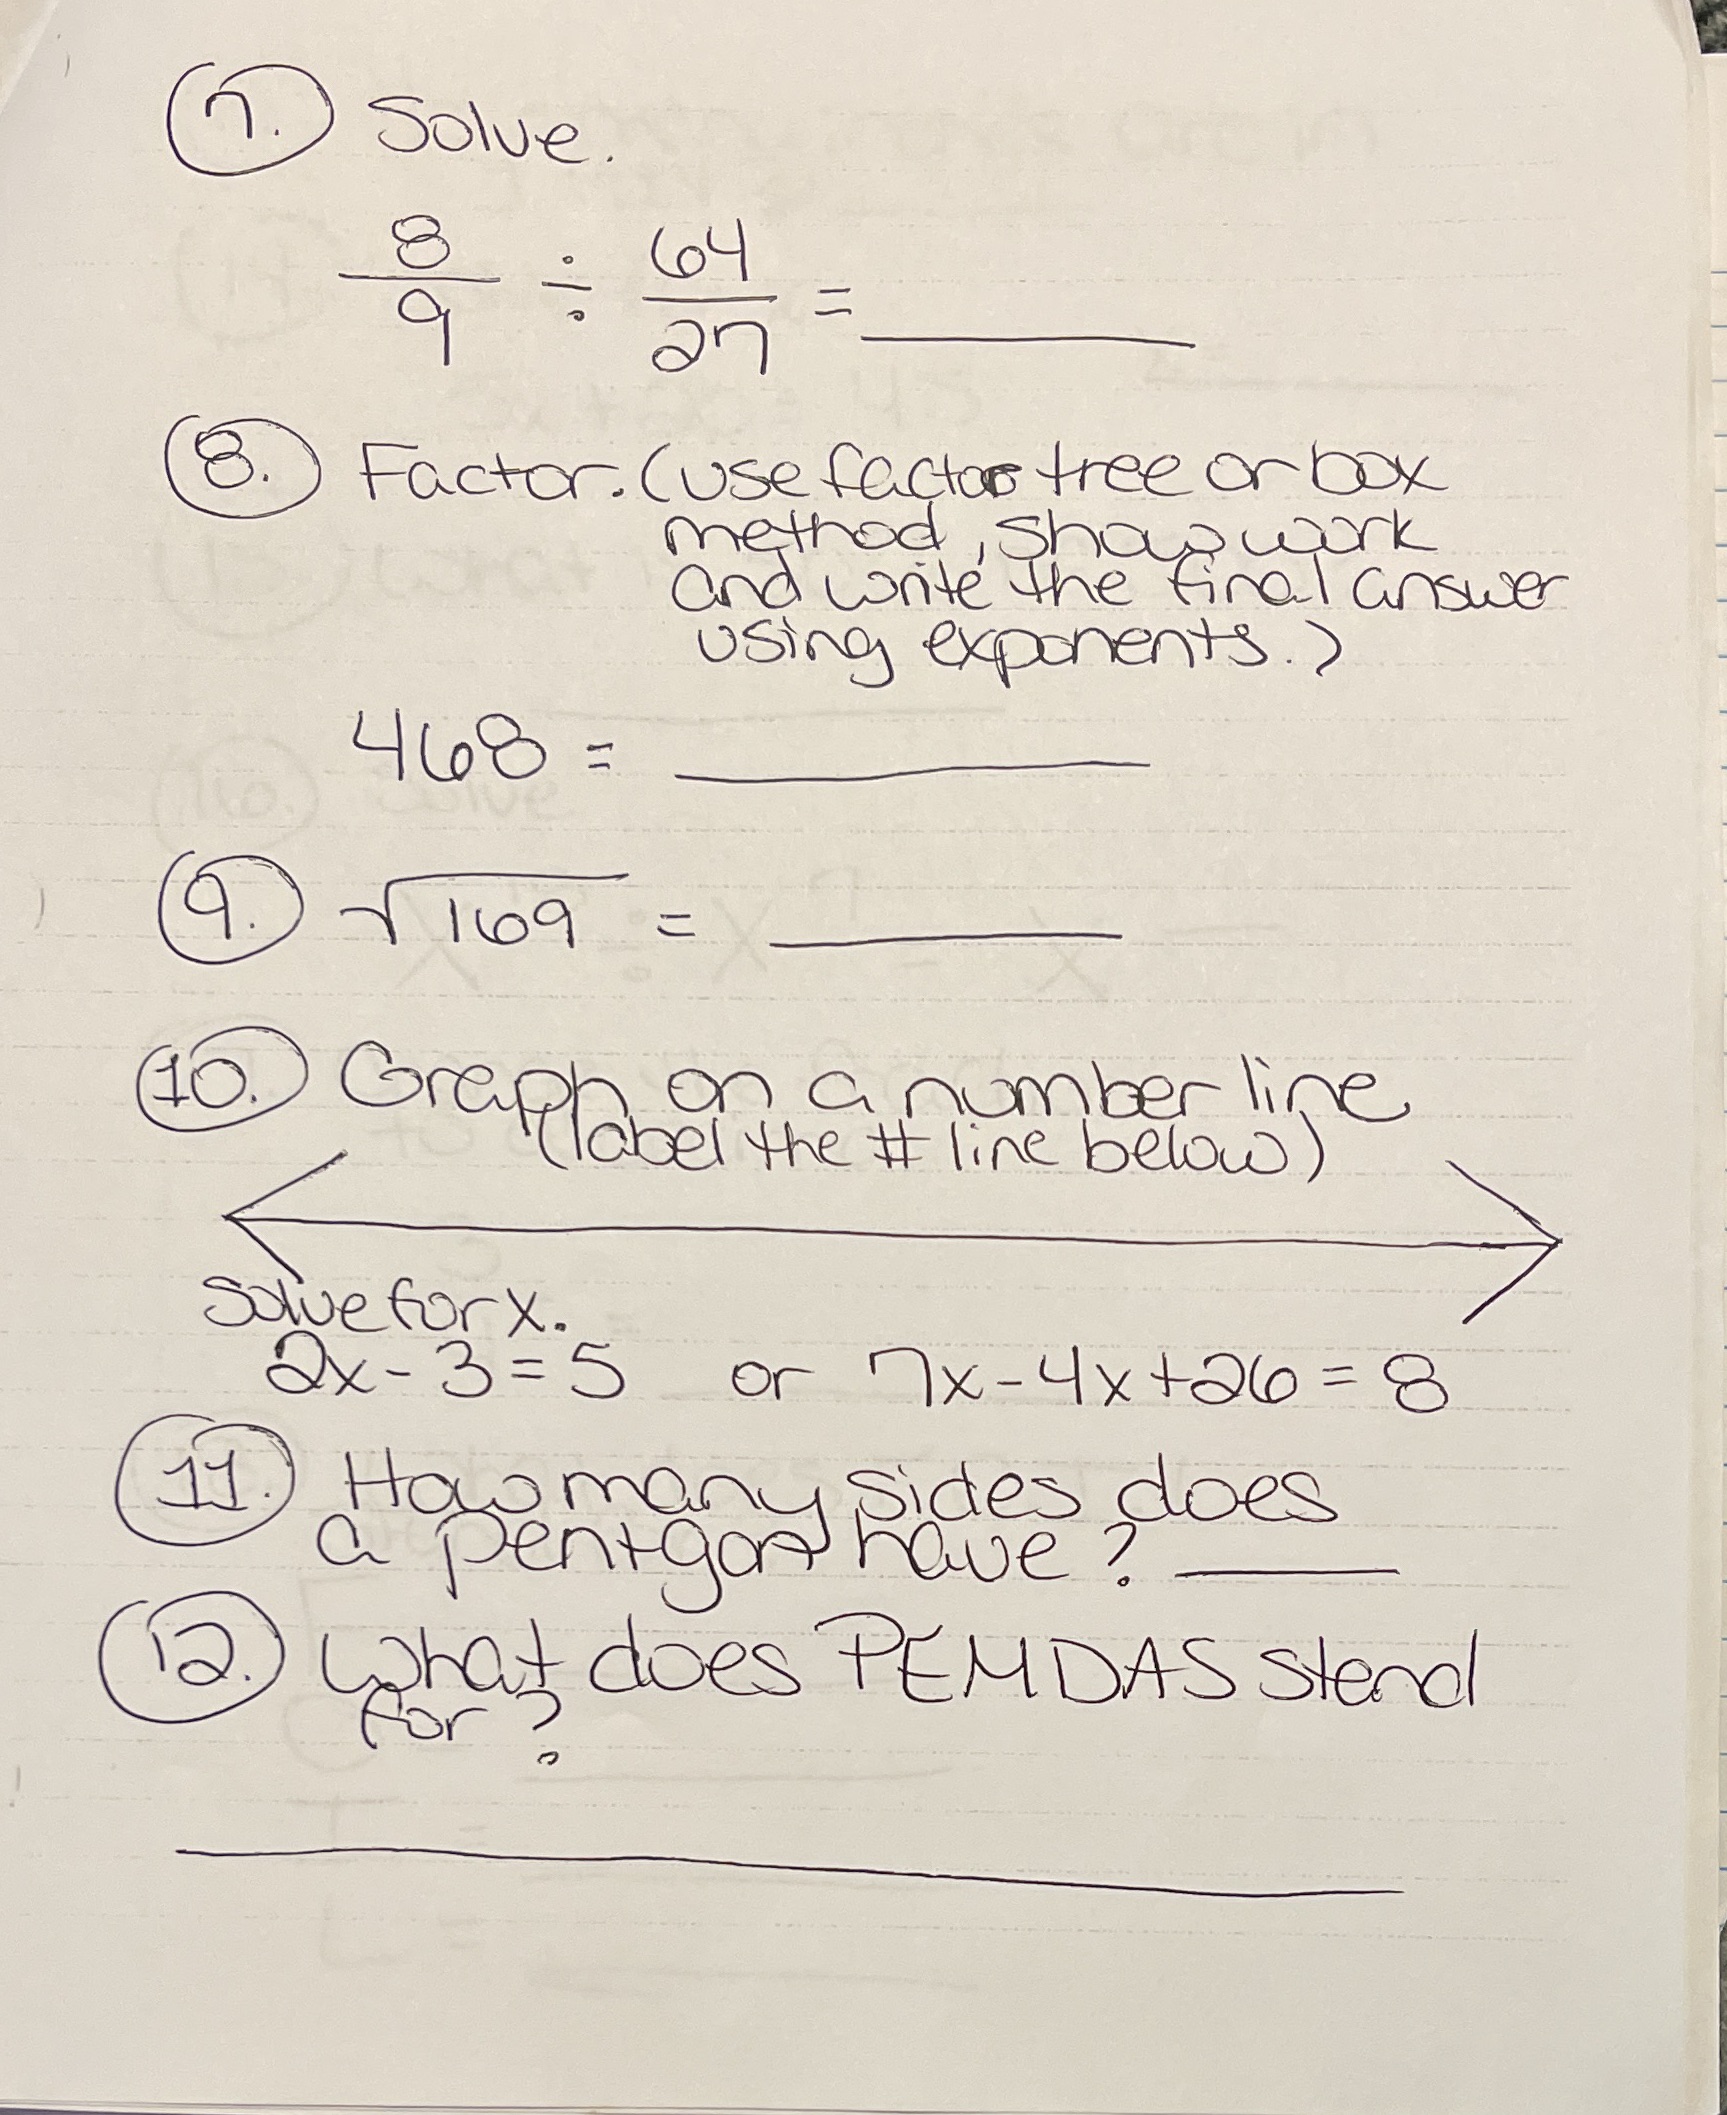 7. Solve.
8/9 ÷ 64/27 = ______
8. Factor. (use factor tree or box
method, show work
and write the final answer
using exponents.)
468 = ______
9. √169 = ______
10. Graph on a number line
(label the # line below)
Solve for x.
2x - 3 = 5 or 7x - 4x + 26 = 8
11. How many sides does
a pentgon have? ______
12. What does PEMDAS stand
for?